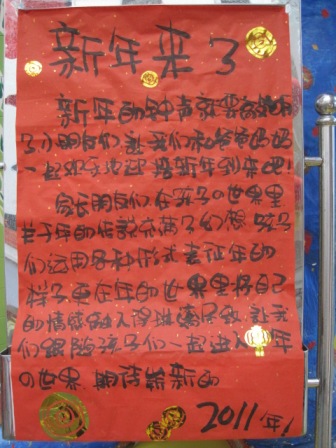 新年来了
新年的钟声就要敲响
了小朋友们让我们和爸爸妈妈
一起欢乐地迎接新年到来吧！
家长朋友们在孩子の世界里
关于年的传说充满了幻想 孩子
们运用各种形式表征年的
样子更在年的世界里将自己
的情感融入得淋漓尽致 让我
们跟随孩子们一起进入年
の世界 期待崭新的
2011年！